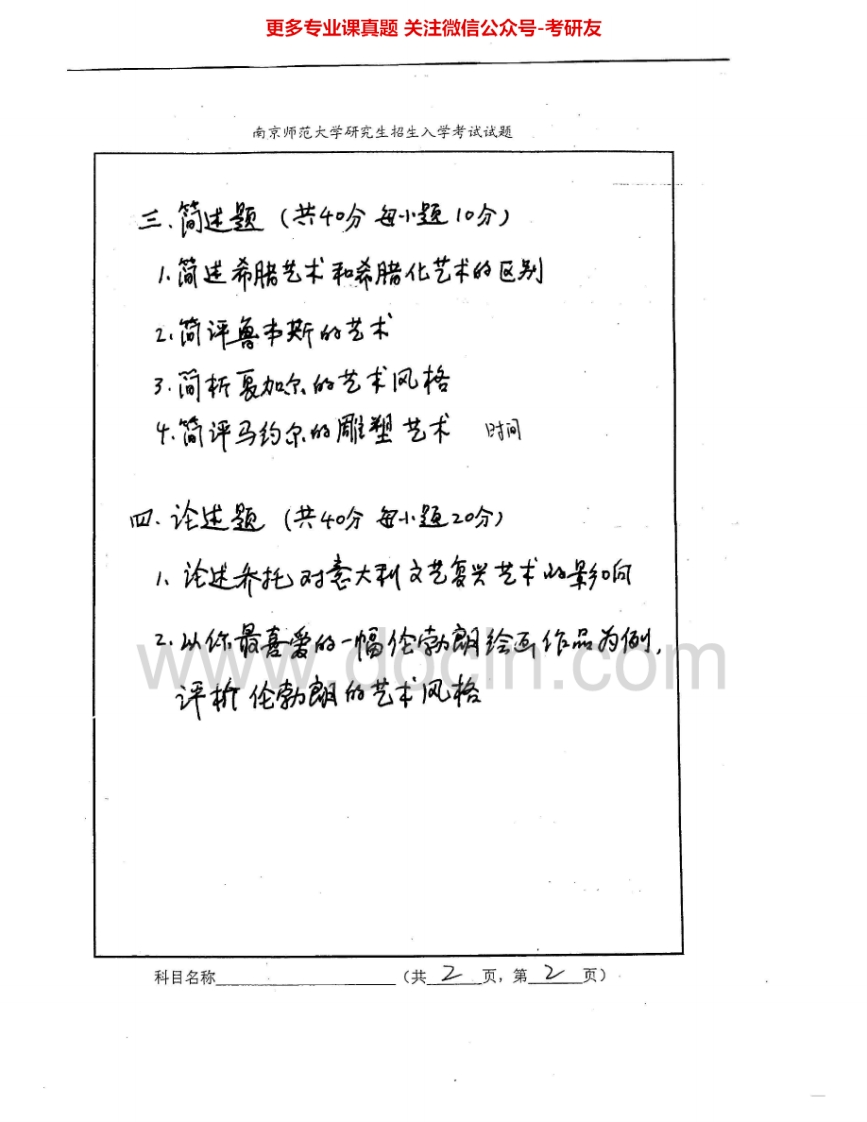 更多专业课真题 关注微信公众号-考研友
南京师范大学研究生招生入学考试试题
三、简述题（共40分 每小题10分）
1.简述希腊艺术和希腊化艺术的区别
2.简评鲁本斯的艺术
3.简析夏加尔的艺术风格
4.简评马约尔的雕塑艺术 时间
四、论述题（共40分 每小题20分）
1、论述乔托对意大利文艺复兴艺术的影响
2.以你最喜爱的一幅伦勃朗绘画作品为例，
www.docin.com
评析伦勃朗的艺术风格
科目名称 （共 2 页，第 2 页）